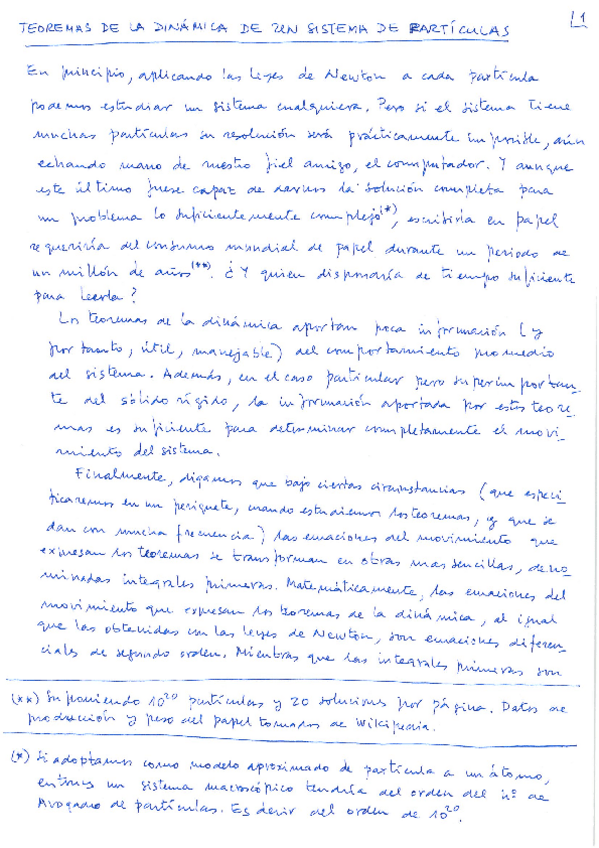 TEOREMAS DE LA DINÁMICA DE UN SISTEMA DE PARTÍCULAS
1
En principio, aplicando las leyes de Newton a cada partícula
podemos estudiar un sistema cualquiera. Pero si el sistema tiene
muchas partículas su resolución será prácticamente imposible, aún
echando mano de nuestro fiel amigo, el computador. Y aunque
este último fuese capaz de darnos la solución completa para
un problema lo suficientemente complejo(*), escribirla en papel
requeriría del consumo mundial de papel durante un periodo de
un millón de años(**). ¿Y quien dispondría de tiempo suficiente
para leerla?
Los teoremas de la dinámica aportan poca información (y
por tanto, útil, manejable) del comportamiento promedio
del sistema. Además, en el caso particular pero superimportan-
te del sólido rígido, la información aportada por estos teore-
mas es suficiente para determinar completamente el movi-
miento del sistema.
Finalmente, digamos que bajo ciertas circunstancias (que especi-
ficaremos en un periquete, cuando estudiemos los teoremas, y que se
dan con mucha frecuencia) las ecuaciones del movimiento que
expresan los teoremas se transforman en otras mas sencillas, deno-
minadas integrales primeras. Matemáticamente, las ecuaciones del
movimiento que expresan los teoremas de la dinámica, al igual
que las obtenidas con las leyes de Newton, son ecuaciones diferen-
ciales de segundo orden. Mientras que las integrales primeras son
(**) Suponiendo 10²⁰ partículas y 20 soluciones por página. Datos de
producción y peso del papel tomados de Wikipedia.
(*) Si adoptamos como modelo aproximado de partícula a un átomo,
entonces un sistema macroscópico tendría del orden del nº de
Avogadro de partículas. Es decir del orden de 10²⁰.